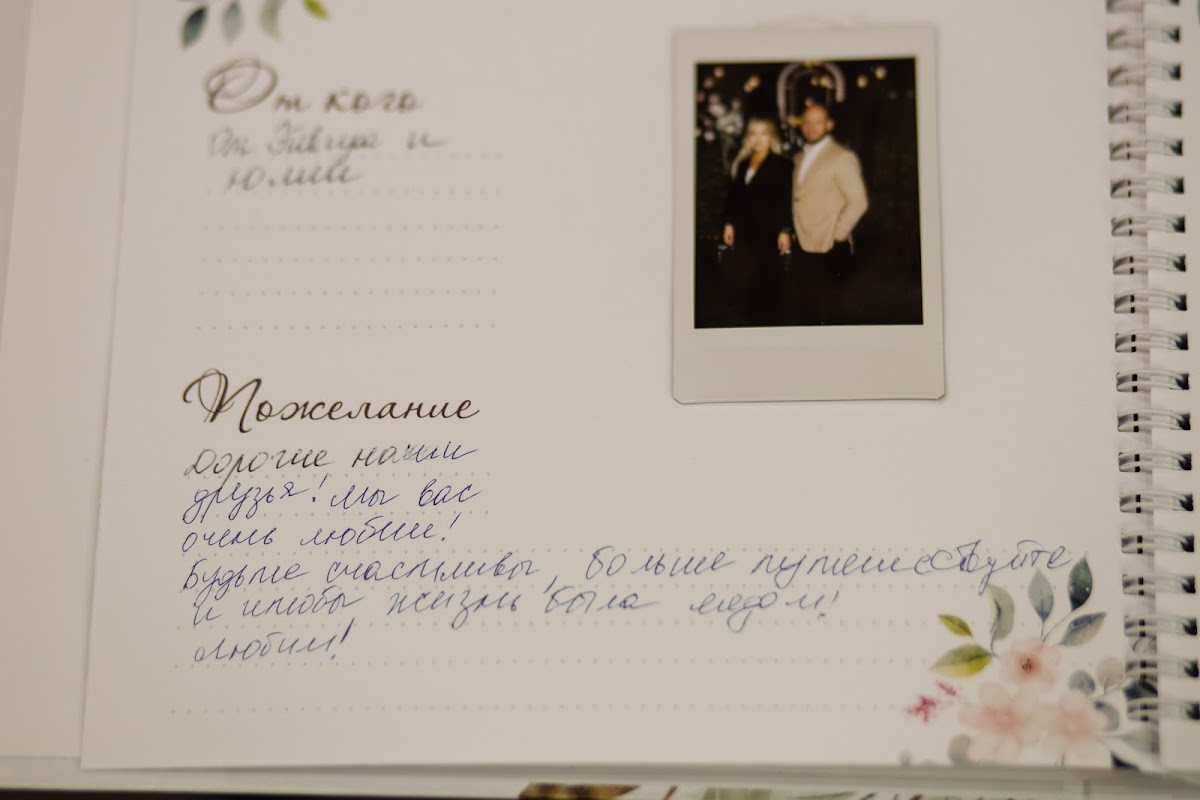 От кого
От Эйвира и
Юлии
Пожелание
Дорогие наши
друзья! Мы вас
очень любим!
Будьте счастливы, больше путешествуйте
и чтобы жизнь была мёдом!
Любим!